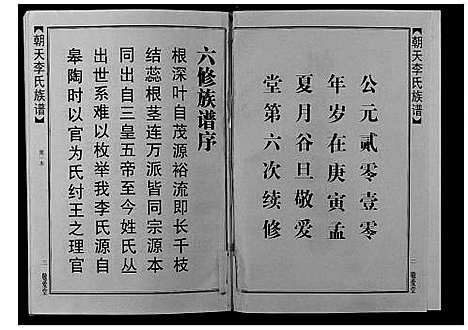 朝天李氏族谱
公元贰零壹零
年岁在庚寅孟
夏月谷旦敬爱
堂第六次续修
二
敬爱堂
六修族谱序
根深叶自茂源裕流即长千枝
结蕊根茎连万派皆同宗源本
同出自三皇五帝至今姓氏丛
出世系难以枚举我李氏源自
皋陶时以官为氏纣王之理官
朝天李氏族谱
三
敬爱堂